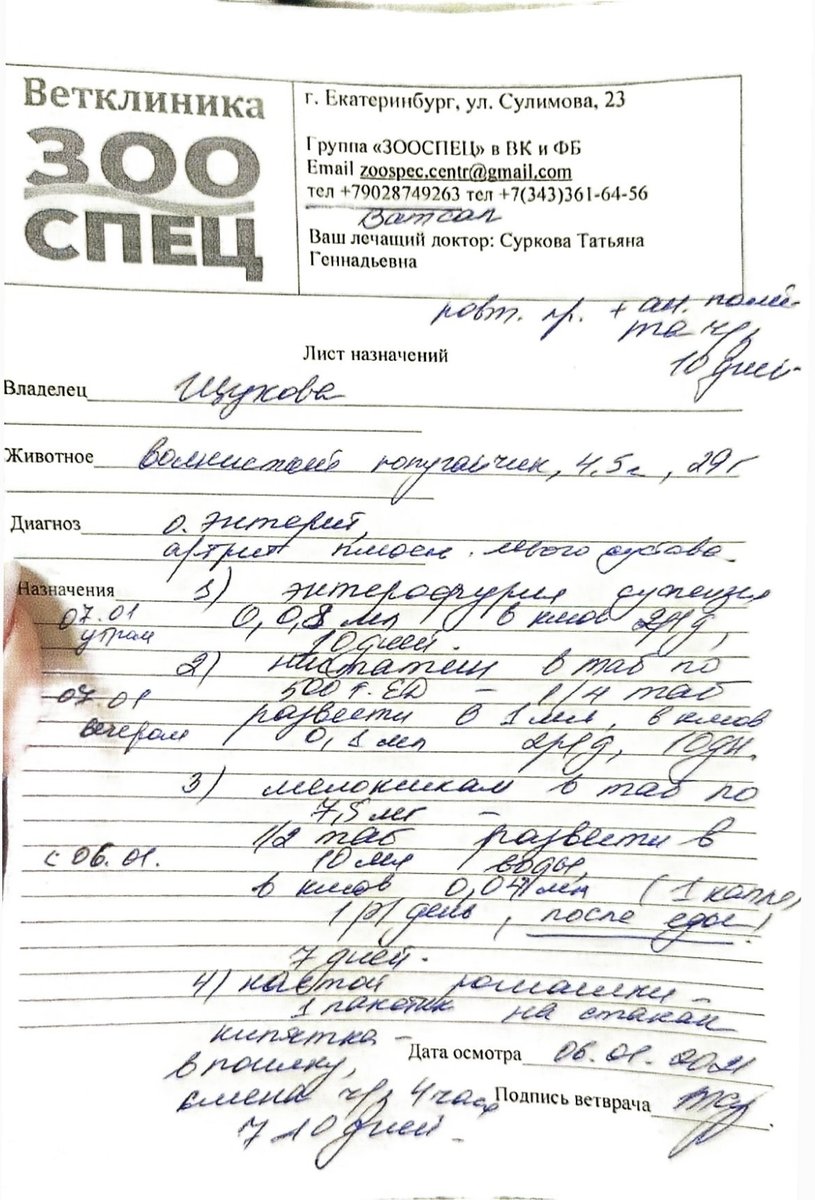 Ветклиника
ЗОО
СПЕЦ
г. Екатеринбург, ул. Сулимова, 23
Группа «ЗООСПЕЦ» в ВК и ФБ
Email zoospec.centr@gmail.com
тел +79028749263 тел +7(343)361-64-56
Ватсап
Ваш лечащий доктор: Суркова Татьяна
Геннадьевна
повт. пр. + ан. помё-
та ч/з
10 дней
Лист назначений
Владелец Щукова
Животное волнистый попугайчик, 4,5г, 29г
Диагноз о. энтерит,
артрит плюсн. левого сустава.
Назначения 1) энтерофурил суспензия
07.01 0,08 мл в клюв 2р/д,
утром 10 дней.
2) нистатин в таб по
07.01 500 т. ЕД - 1/4 таб
развести в 1 мл, в клюв
вечером 0,1 мл 2р/д, 10дн.
3) мелоксикам в таб по
7,5 мг -
1/2 таб развести в
с 06.01. 10 мл воды,
в клюв 0,04 мл (1 капля)
1 р/день, после еды!
7 дней.
4) настой ромашки -
1 пакетик на стакан
кипятка -
Дата осмотра 06.01.2021
в поилку,
смена ч/з 4 часа
Подпись ветврача
7 10 дней.